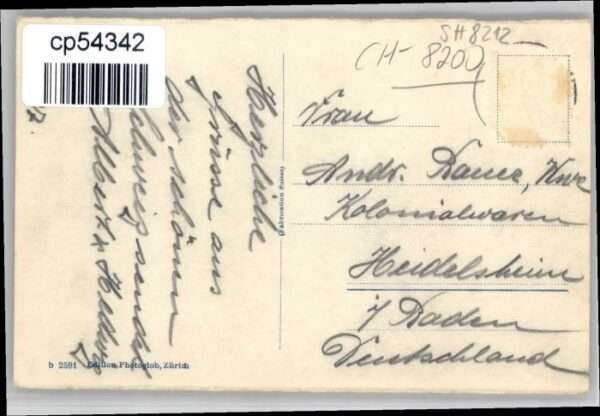 cp54342
SH 8212
CH-8200
Herzliche
Grüsse aus
der schönen
Schweiz sendet
Albert u.
Frau
Andr. Bauer, Kwe
Kolonialwaren
Heidelsheim
i/ Baden
Deutschland
b 2591 Edition Photoglob, Zürich